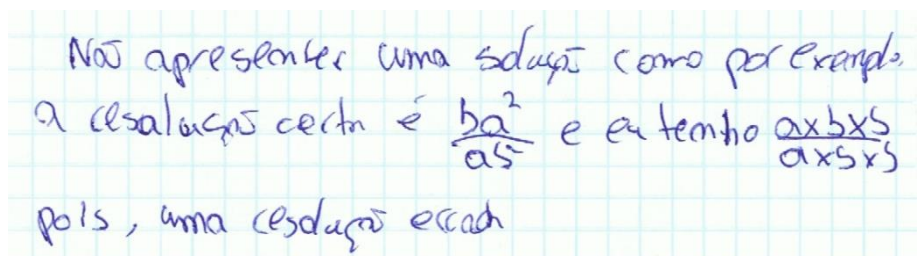 Não apresentei uma solução como por exemplo.
a resolução certa é \frac{ba^2}{a5} e eu tenho \frac{a×b×5}{a×5×5}
pois, uma resolução errada